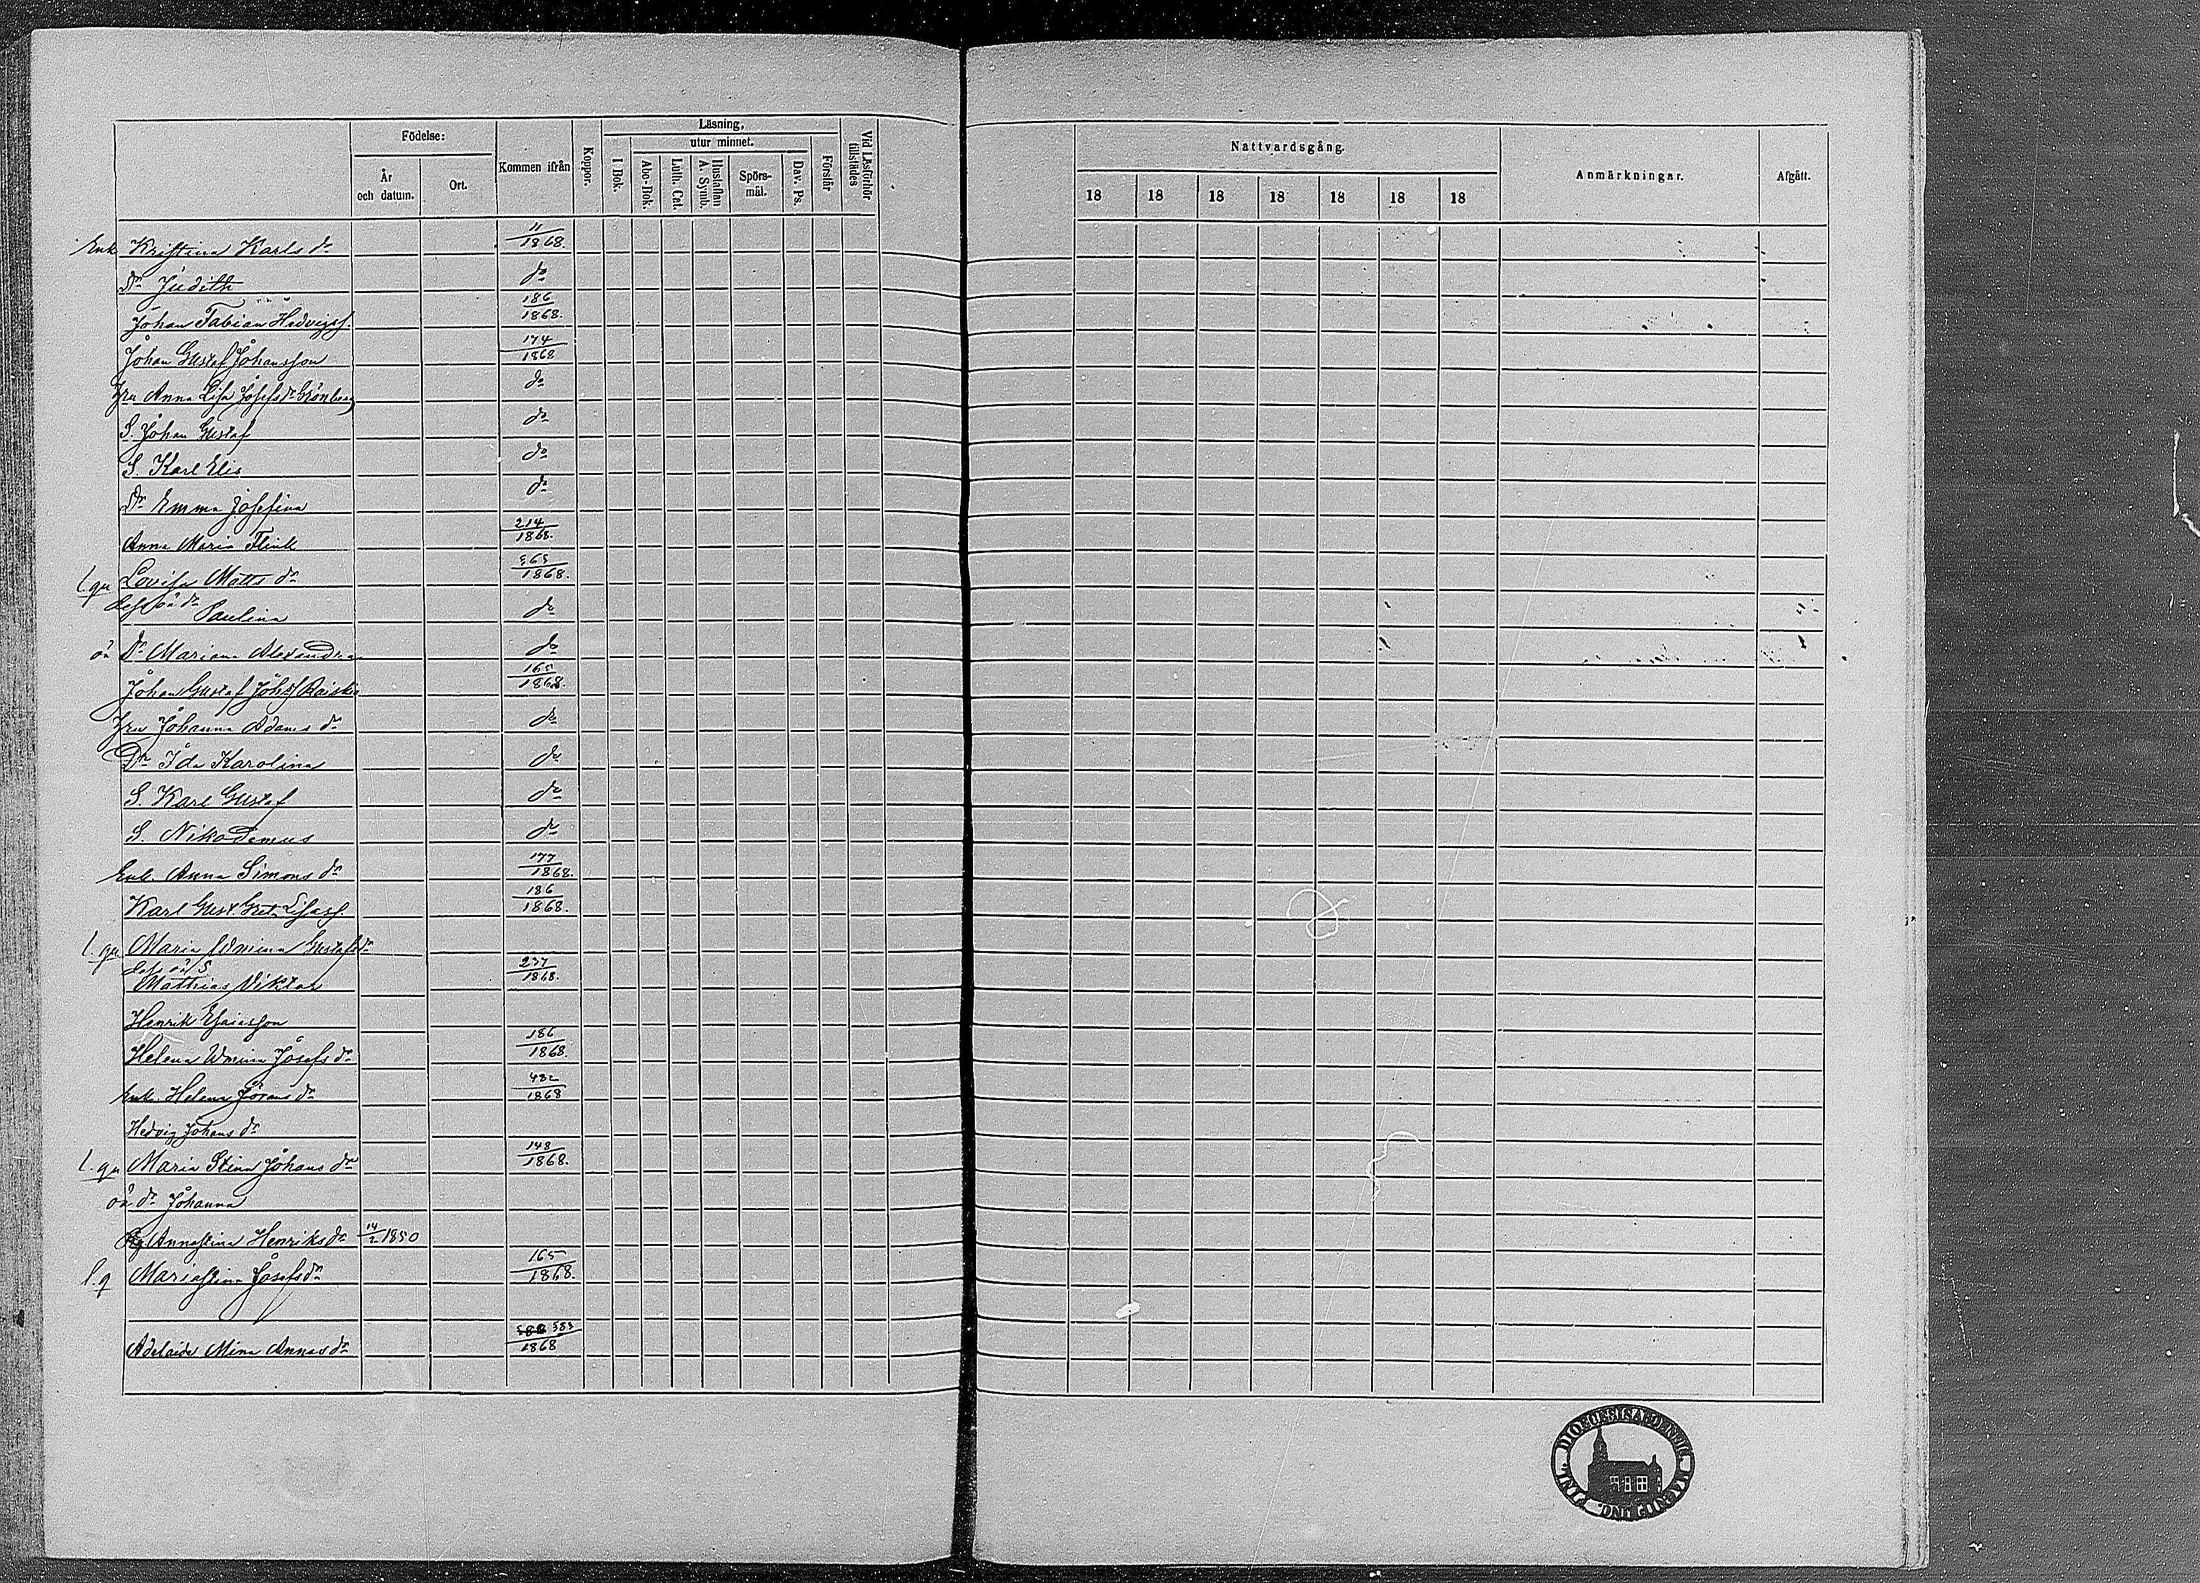 Födelse:
År och datum.
Ort.
Kommen ifrån
Koppor.
Läsning,
utur minnet.
I Bok.
Abc-Bok.
Luth. Cat.
Hustaflan A. Symb.
Spörsmål.
Dav. Ps.
Förstår
Vid Läsförhör tillstädes
Nattvardsgång.
18 18 18 18 18 18 18
Anmärkningar.
Afgått.
Enk. Kristina Karls dr 11/1868.
Dr Judith do
Johan Fabian Hedvigss. 186/1868.
Johan Gustaf Johansson 174/1868
Hru Anna Lisa Josefs dr Grönberg do
S. Johan Gustaf do
S. Karl Elis do
Dr Emma Josefina do
Anna Maria Flink 214/1868.
l. qu Lovisa Matts dr 565/1868.
dess oä dr Paulina do
oä Dr Mariana Alexandra do
Johan Gustaf Johss Raiskio 165/1868.
Hru Johanna Adams dr do
Dr Ida Karolina do
S. Karl Gustaf do
S. Nikodemus do
Enk. Anna Simons dr 177/1868.
Karl Gust. Greta Lisass. 186/1868.
l. qu Maria Wmina Gustafs dr
dess oä S Matthias Viktor 237/1868.
Henrik Esaiasson
Helena Wmina Josefs dr 186/1868.
Enk. Helena Görans dr 482/1868
Hedvig Johans dr
l. qu Maria Stina Johans dr 148/1868.
oä dr Johanna
Annastina Henriks dr 14/2 1850
l. q Mariastina Josefs dr 165/1868.
Adelaide Mina Annas dr 583/1868